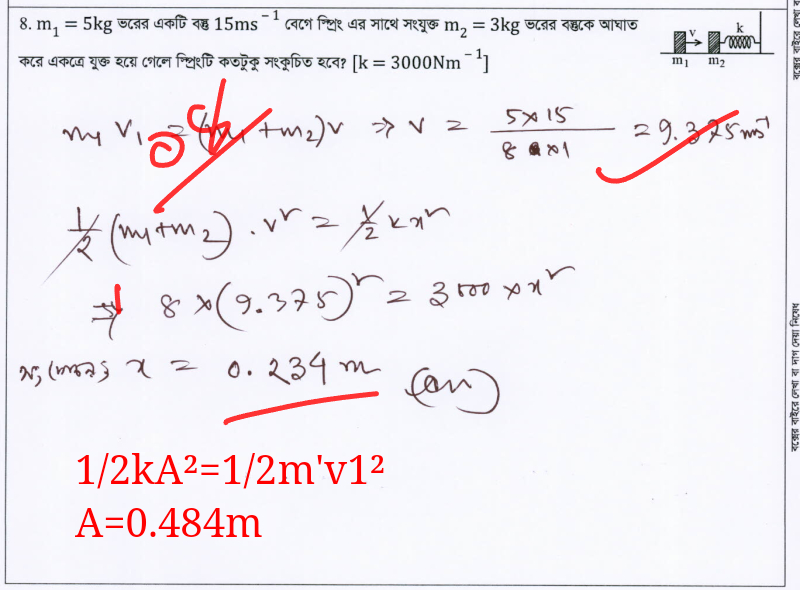 8. m₁ = 5kg ভরের একটি বস্তু 15ms⁻¹ বেগে স্প্রিং এর সাথে সংযুক্ত m₂ = 3kg ভরের বস্তুকে আঘাত
করে একত্রে যুক্ত হয়ে গেলে স্প্রিংটি কতটুকু সংকুচিত হবে? [k = 3000Nm⁻¹]
v k
m₁ m₂
m₁ v₁ = (m₁ + m₂)v ⇒ v = 5×15 / 8 ×1 = 9.375 ms⁻¹
1/2 (m₁+m₂) . v² = 1/2 k x²
⇒ 8 × (9.375)² = 3000 × x²
x = 0.234 m (an)
1/2kA²=1/2m'v1²
A=0.484m
বক্সের বাইরে লেখা বা দাগ দেয়া নিষেধ